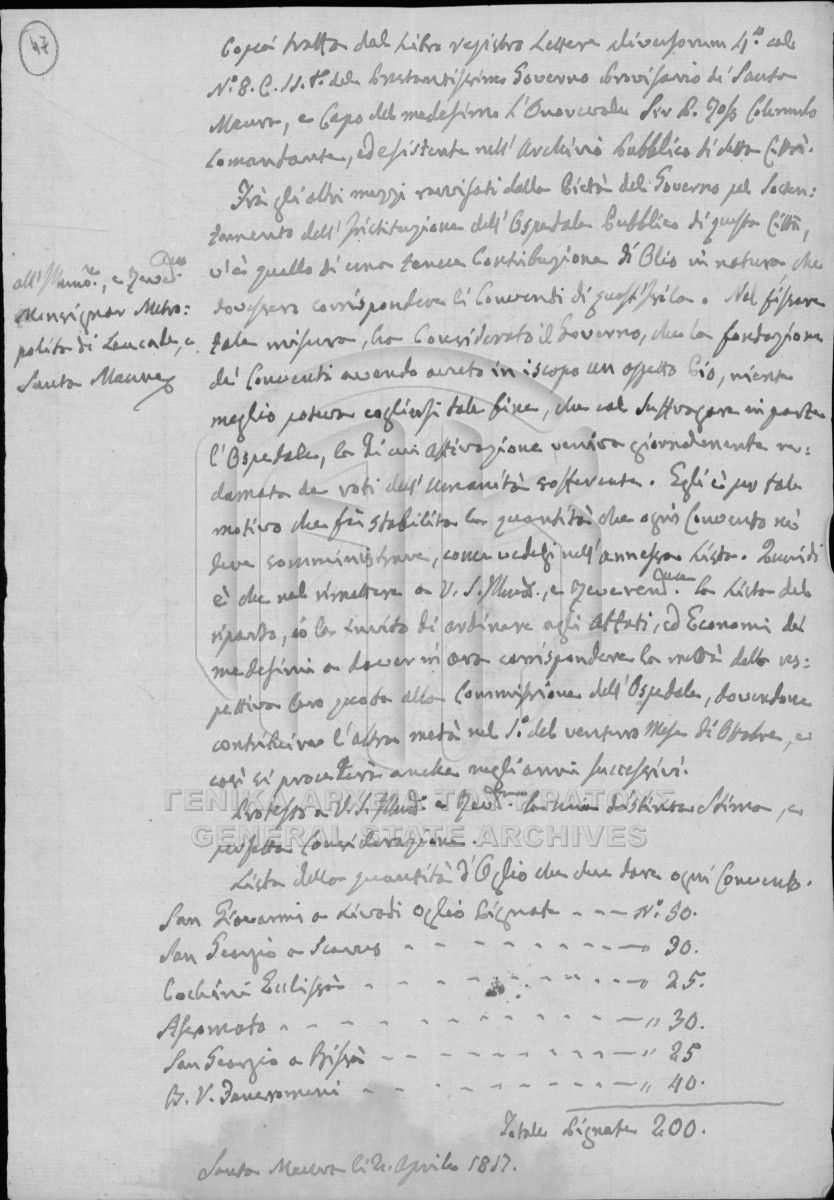 47
Copia tratta dal Libro registro Lettere diversorum 4.º col
Nº 8. C. 11. tº del Prestantissimo Governo Provisorio di Santa
Maura, e Capo del medesimo l'Onorevole Sir P. Ross Colonnello
Comandante, ed esistente nell'Archivio Pubblico di detta Città.
Frà gli altri mezzi ravvisati dalla Pietà del Governo pel Sosten:
tamento dell'Instituzione dell'Ospedale Pubblico di questa Città,
v'è quello di una tenue Contribuzione di Olio in natura che
dovessero corrispondere li Conventi di quest'Isola. Nel fissare
tale misura, ha Considerato il Governo, che la fondazione
dei Conventi avendo avuto in iscopo un oggetto Pio, niente
meglio poteva cogliersi tale fine, che col suffragare in parte
l'Ospedale, la di cui Attivazione veniva giornalmente re:
clamata da voti dell'Umanità sofferente. Egli è per tale
motivo che fù stabilita la quantità che ogni Convento
deve somministrare, come vedesi nell'annessa Lista. Quindi
è che nel rimettere a V. S. Illma, e Reverendma la Lista del
riparto, io la invito di ordinare agli Abbati, ed Economi dei
medesimi a dover in ora corrispondere la mettà della res:
pettiva loro quota alla Commissione dell'Ospedale, dovendone
contribuire l'altra metà nel 1º del venturo Mese di Ottobre, e
così si procederà anche negli anni successivi.
Protesto a V. S. Illma e Revdma la mia distinta Stima, e
perfetta Considerazione.
all'Illmo, e Revdmo
Monsignor Metro:
polita di Leucade, e
Santa Maura
Lista della quantità d'Oglio che deve dare ogni Convento.
San Giovanni a Livadi Oglio Pignate - - - Nº 50.
San Georgio a Scarus - - - - - - - - " 30.
Cochini Ecclissià - - - - - - - - " 25.
Asomato - - - - - - - - - - " 30.
San Georgio a Bissà - - - - - - - - " 25
B. V. Faneromeni - - - - - - - - " 40.
Totale Pignate 200.
Santa Maura li 2. Aprile 1817.
ΓΕΝΙΚΑ ΑΡΧΕΙΑ ΤΟΥ ΚΡΑΤΟΥΣ
GENERAL STATE ARCHIVES